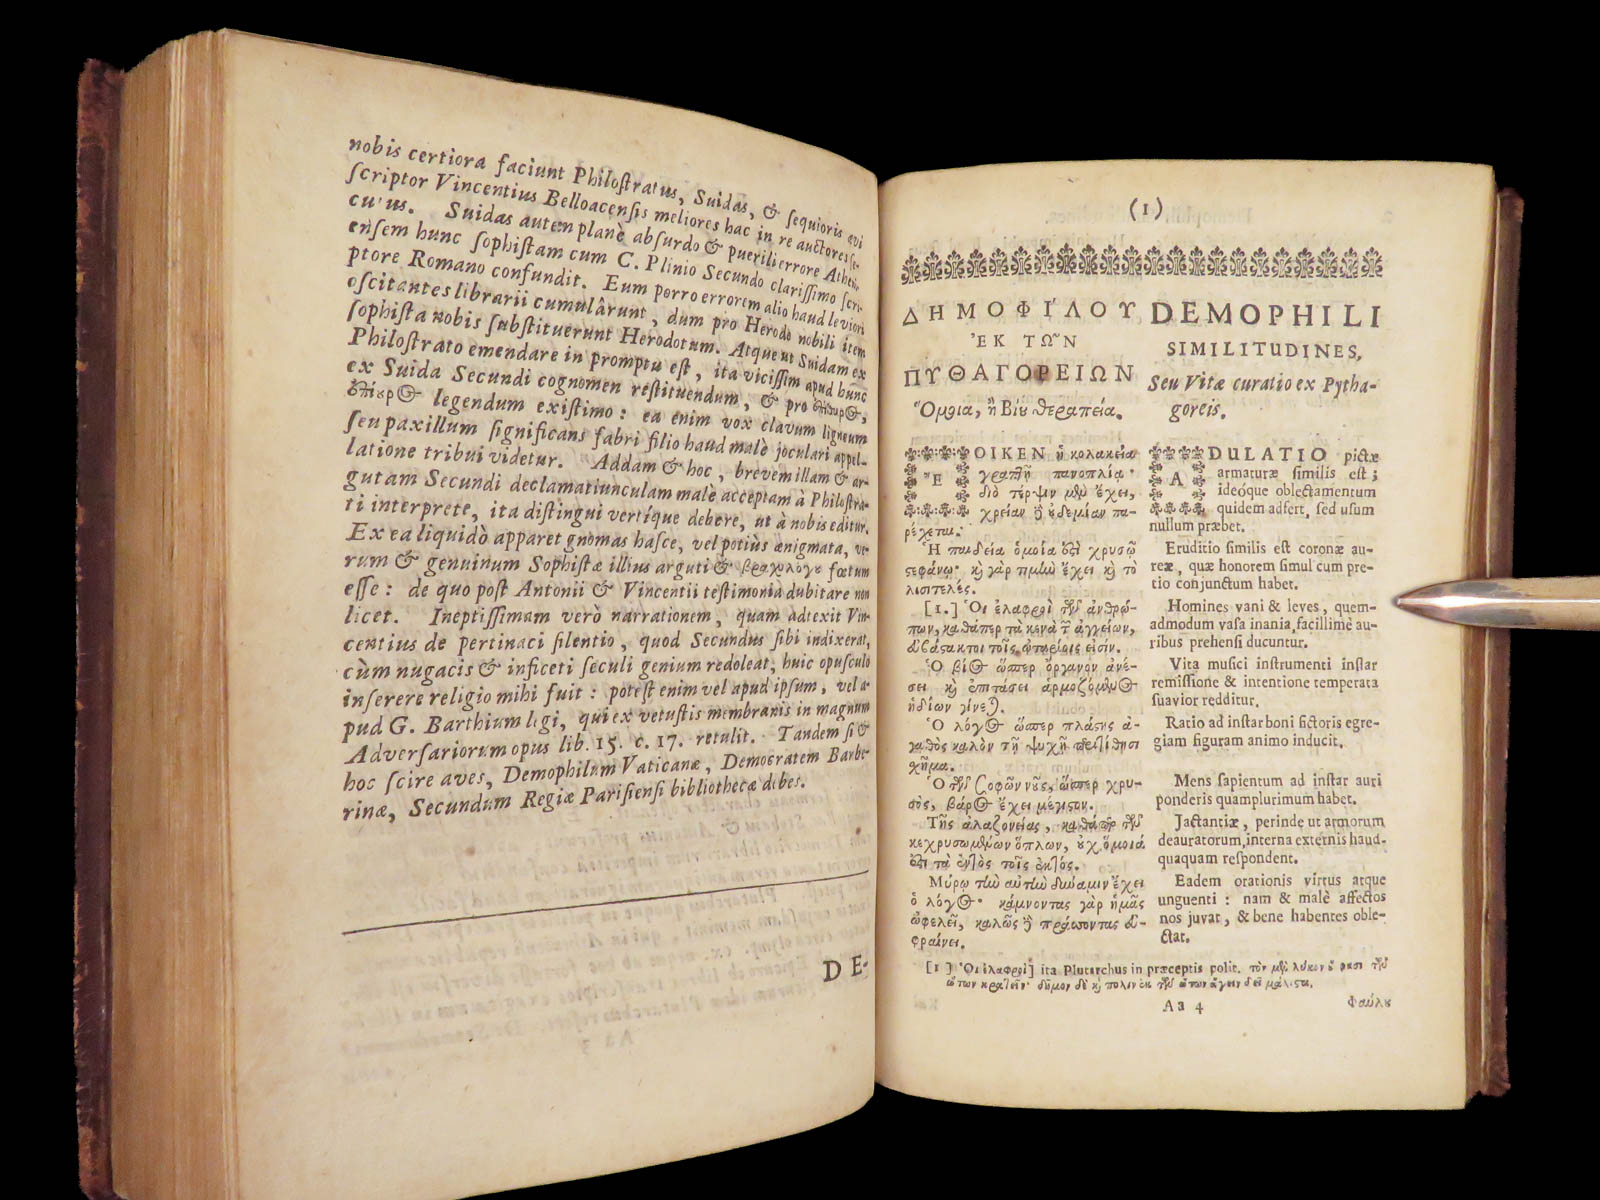 nobis certiora faciunt Philoſtratus, Suidas, & ſequioris ævi
ſcriptor Vincentius Belloacenſis meliores hac in re auctores ſe-
cutus. Suidas autem planè abſurdo & puerili errore Athéni-
enſem hunc ſophiſtam cum C. Plinio Secundo clariſſimo ſcri-
ptore Romano confundit. Eum porro errorem alio haud leviori
oſcitantes librarii cumulârunt, dum pro Herode nobili item
ſophiſta nobis ſubſtituerunt Herodotum. Atque ut Suidam ex
Philoſtrato emendare in promptu eſt, ita viciſſim apud hunc
ex Suida Secundi cognomen reſtituendum, & pro
legendum exiſtimo: ea enim vox clavum ligneum
ſeu paxillum ſignificans fabri filio haud malè joculari appel-
latione tribui videtur. Addam & hoc, brevem illam & ar-
gutam Secundi declamatiunculam malè acceptam à Philoſtra-
ti interprete, ita diſtingui vertíque debere, ut à nobis editur.
Ex ea liquidò apparet gnomas haſce, vel potiùs ænigmata, ve-
rum & genuinum Sophiſtæ illius arguti & βραχυλόγου fœtum
eſſe: de quo poſt Antonii & Vincentii teſtimonia dubitare non
licet. Ineptiſſimam verò narrationem, quam adtexit Vin-
centius de pertinaci ſilentio, quod Secundus ſibi indixerat,
cùm nugacis & inficeti ſeculi genium redoleat, huic opuſculo
inſerere religio mihi fuit: poteſt enim vel apud ipſum, vel a-
pud G. Barthium legi, qui ex vetuſtis membranis in magnum
Adverſariorum opus lib. 15. c. 17. retulit. Tandem ſi &
hoc ſcire aves, Demophilum Vaticanæ, Democratem Barbe-
rinæ, Secundum Regiæ Pariſienſi bibliothecæ debes.
DE-
(1)
ΔΗΜΟΦΙ΄ΛΟΥ
ἘΚ ΤΩ͂Ν
ΠΥΘΑΓΟΡΕΙΩΝ
Ὅμοια, ἢ Βίου θεραπεία.
ἜΟΙΚΕΝ ἡ κολακεία
γραπτῇ πανοπλίᾳ·
διὸ τέρψιν μὲν ἔχει,
χρείαν δὲ οὐδεμίαν πα-
ρέχεται.
Ἡ παιδεία ὁμοία ἐστὶ χρυσῷ
στεφάνῳ· καὶ γὰρ τιμὴν ἔχει καὶ τὸ
λυσιτελές.
[1.] Οἱ ἐλαφροὶ τῶν ἀνθρώ-
πων, καθάπερ τὰ κενὰ τῶν ἀγγείων,
εὐβάστακτοι τοῖς ὠταρίοις εἰσίν.
Ὁ βίος ὥσπερ ὄργανον ἀνέ-
σει καὶ ἐπιτάσει ἁρμοζόμενος
ἡδίων γίνεται.
Ὁ λόγος ὥσπερ πλάστης ἀ-
γαθὸς καλὸν τῇ ψυχῇ περιτίθησι
σχῆμα.
Ὁ τῶν σοφῶν νοῦς, ὥσπερ χρυ-
σὸς, βάρος ἔχει μέγιστον.
Τῆς ἀλαζονείας, καθάπερ τῶν
κεχρυσωμένων ὅπλων, οὐχ ὅμοιά
ἐστι τὰ ἐντὸς τοῖς ἐκτός.
Μύρῳ τὴν αὐτὴν δύναμιν ἔχει
ὁ λόγος· κάμνοντας γὰρ ἡμᾶς
ὠφελεῖ, καλῶς δὲ πράττοντας εὐ-
φραίνει.
DEMOPHILI
SIMILITUDINES,
Seu Vitæ curatio ex Pytha-
goreis.
ADULATIO pictæ
armaturæ ſimilis eſt;
ideóque oblectamentum
quidem adfert, ſed uſum
nullum præbet.
Eruditio ſimilis eſt coronæ au-
reæ, quæ honorem ſimul cum pre-
tio conjunctum habet.
Homines vani & leves, quem-
admodum vaſa inania, facillimè au-
ribus prehenſi ducuntur.
Vita muſici inſtrumenti inſtar
remiſſione & intentione temperata
ſuavior redditur.
Ratio ad inſtar boni fictoris egre-
giam figuram animo inducit.
Mens ſapientum ad inſtar auri
ponderis quamplurimum habet.
Jactantiæ, perinde ut armorum
deauratorum, interna externis haud-
quaquam reſpondent.
Eadem orationis virtus atque
unguenti: nam & malè affectos
nos juvat, & bene habentes oble-
ctat.
[1] Οἱ ἐλαφροὶ] ita Plutarchus in præceptis polit. τὸν μὲν λύκον οὔ φασι τῶν
ὤτων κρατεῖν· δῆμον δὲ καὶ πόλιν ἐκ τῶν ὤτων ἄγειν δεῖ μάλιστα.
Aa 4
Φαύλου